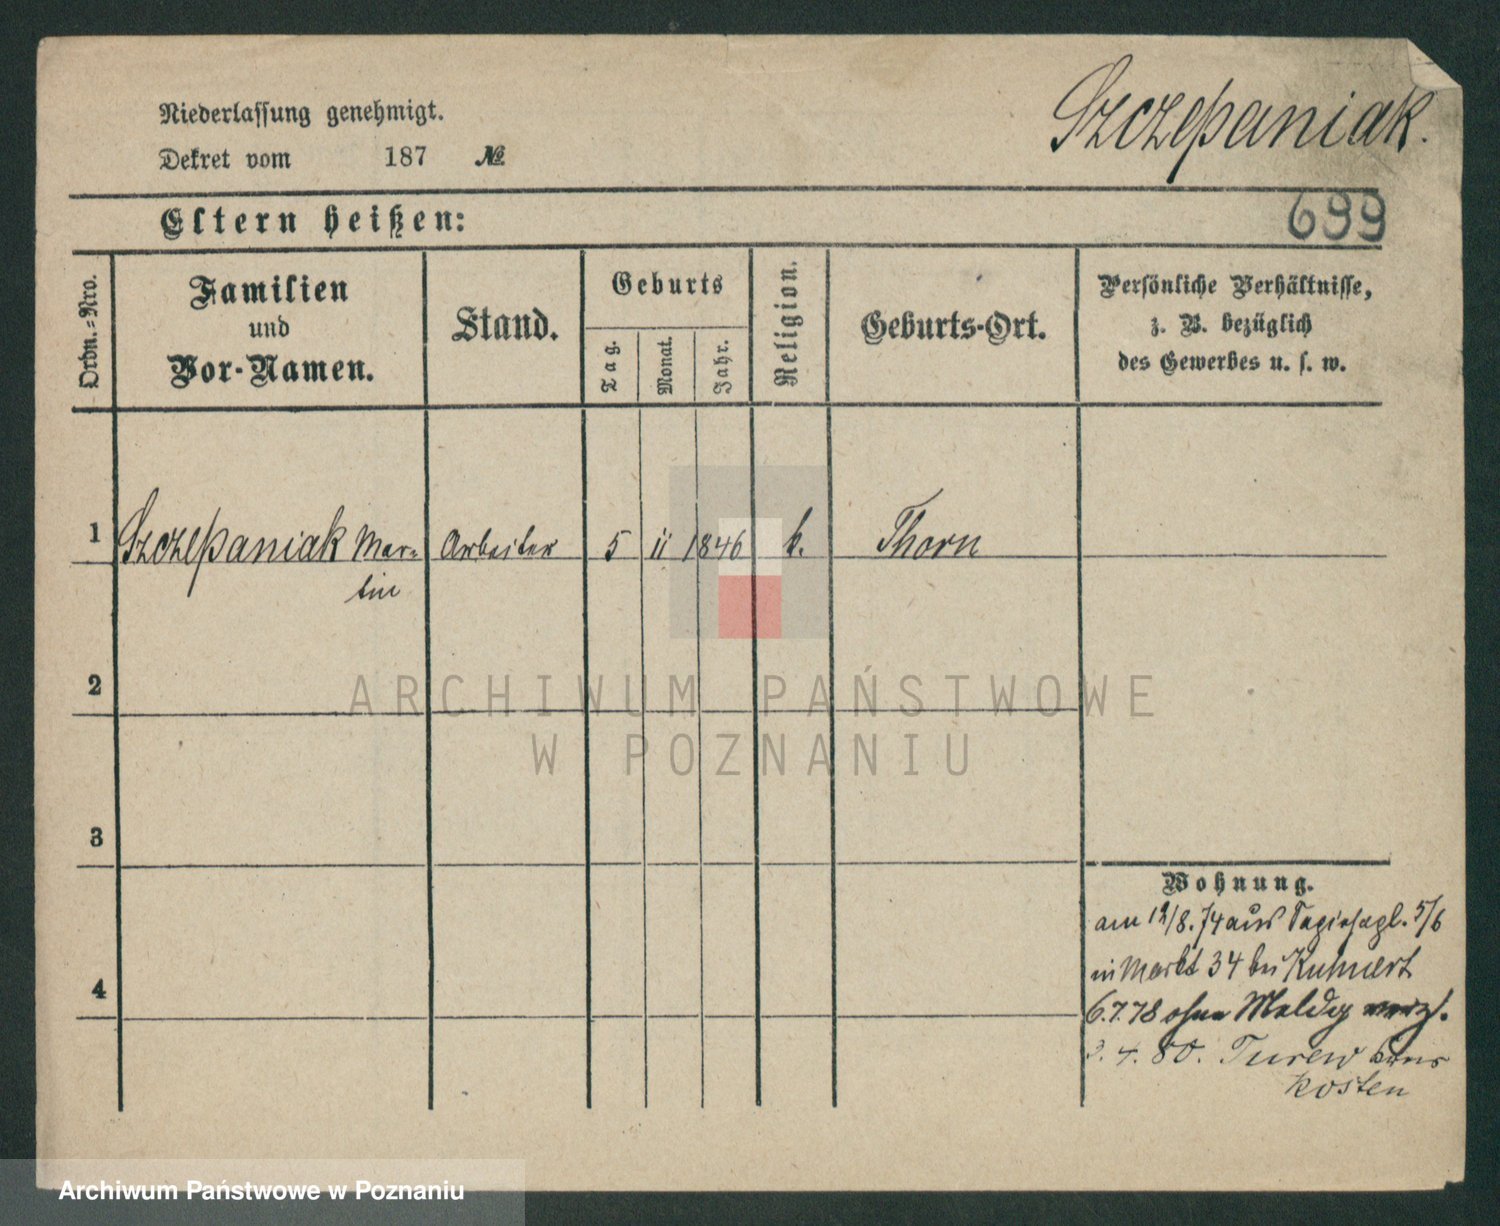 Szczepaniak.
Niederlassung genehmigt.
Dekret vom 187 №
699
Eltern heißen:
Ordn.-Nro.
Familien
und
Vor-Namen.
Stand.
Geburts
Tag.
Monat.
Jahr.
Religion.
Geburts-Ort.
Persönliche Verhältnisse,
z. B. bezüglich
des Gewerbes u. s. w.
1 Szczepaniak Mar= Arbeiter 5 11 1846 k. Thorn
tin
2
ARCHIWUM PAŃSTWOWE
W POZNANIU
3
Wohnung.
am 12/8.74 aus 5/6
in Markt 34 bei Kuhnert
4
6.7.78 ohne Meldg verz.
4. 80. Turew
kosten
Archiwum Państwowe w Poznaniu